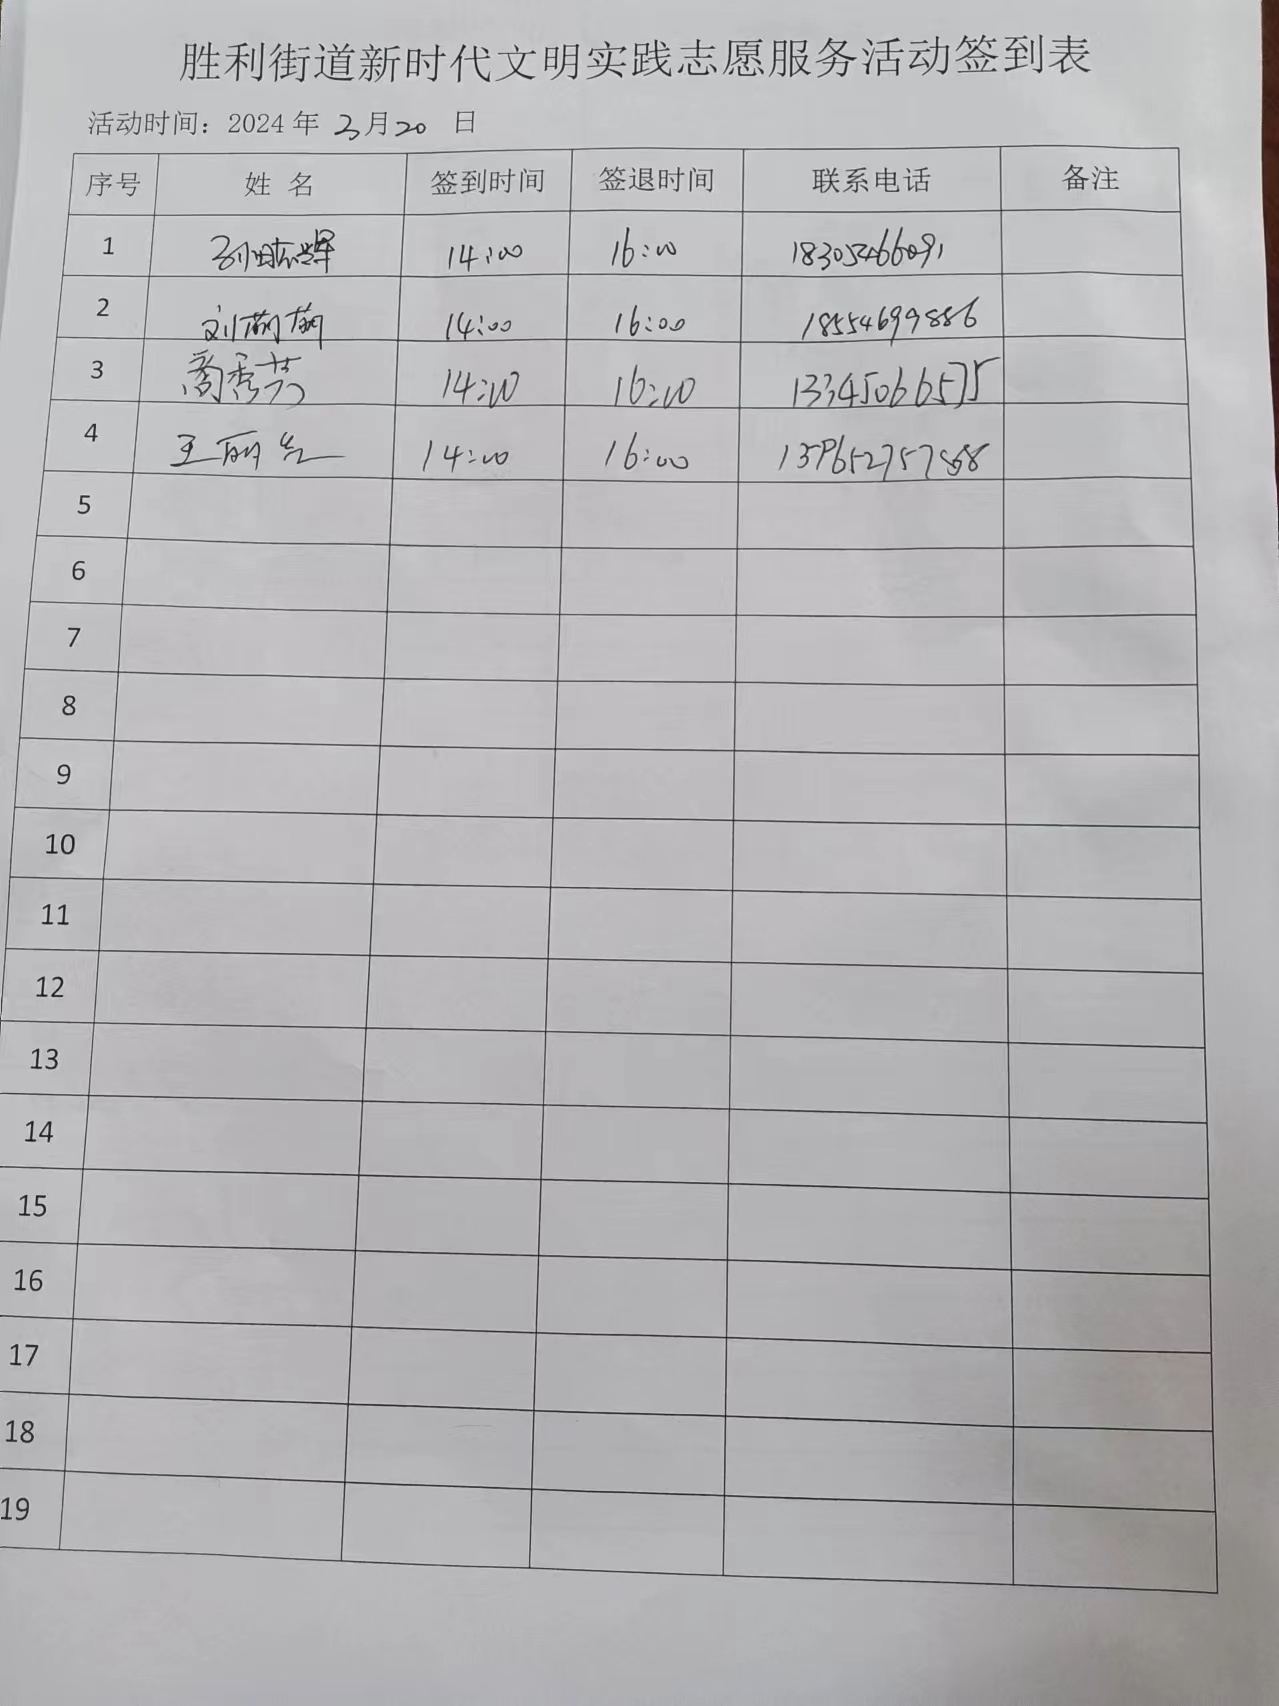 胜利街道新时代文明实践志愿服务活动签到表
活动时间：2024年 3月20 日
序号 姓 名 签到时间 签退时间 联系电话 备注
1 14:00 16:00 18305466091
2 刘萌萌 14:00 16:00 18554699886
3 商秀芳 14:00 16:00 13345066575
4 王丽 14:00 16:00
5
6
7
8
9
10
11
12
13
14
15
16
17
18
19